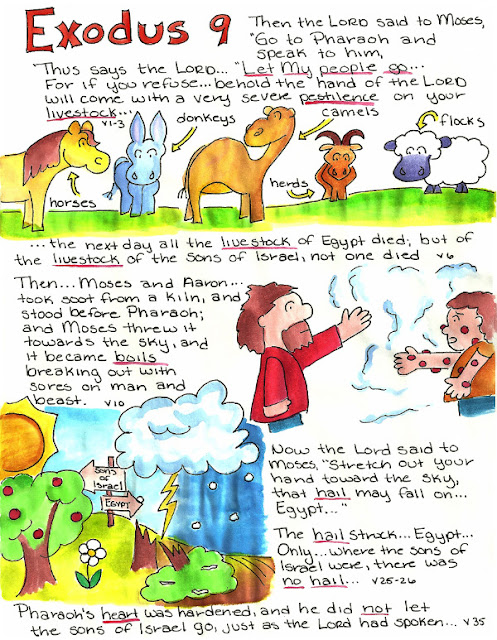 Exodus 9
Then the LORD said to Moses,
"Go to Pharaoh and
speak to him,
Thus says the LORD... "Let My people go...
For if you refuse... behold the hand of the LORD
will come with a very severe pestilence on your
livestock..."
v1-3
donkeys
camels
flocks
horses
herds
...the next day all the livestock of Egypt died; but of
the livestock of the sons of Israel, not one died v6
Then... Moses and Aaron...
took soot from a kiln, and
stood before Pharaoh;
and Moses threw it
towards the sky, and
it became boils
breaking out with
sores on man and
beast. v10
Sons
of
Israel
EGYPT
Now the Lord said to
Moses, "Stretch out your
hand toward the sky,
that hail may fall on...
Egypt..."
The hail struck... Egypt...
Only... where the sons of
Israel were, there was
no hail... v25-26
Pharaoh's heart was hardened, and he did not let
the sons of Israel go, just as the Lord had spoken... v35